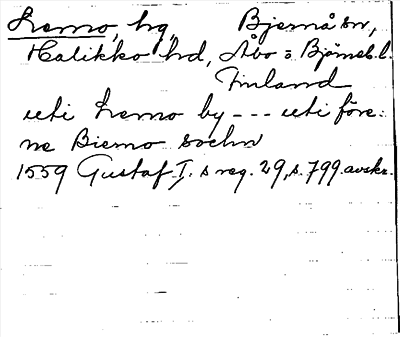 Lemo, hg, Bjernå sn,
Halikko hd, Åbo o Björneb. l.
Finland
uti Lemo by --- uti före:
ne Biemo sochn
1559 Gustaf I. s reg. 29, s. 799. avskr.